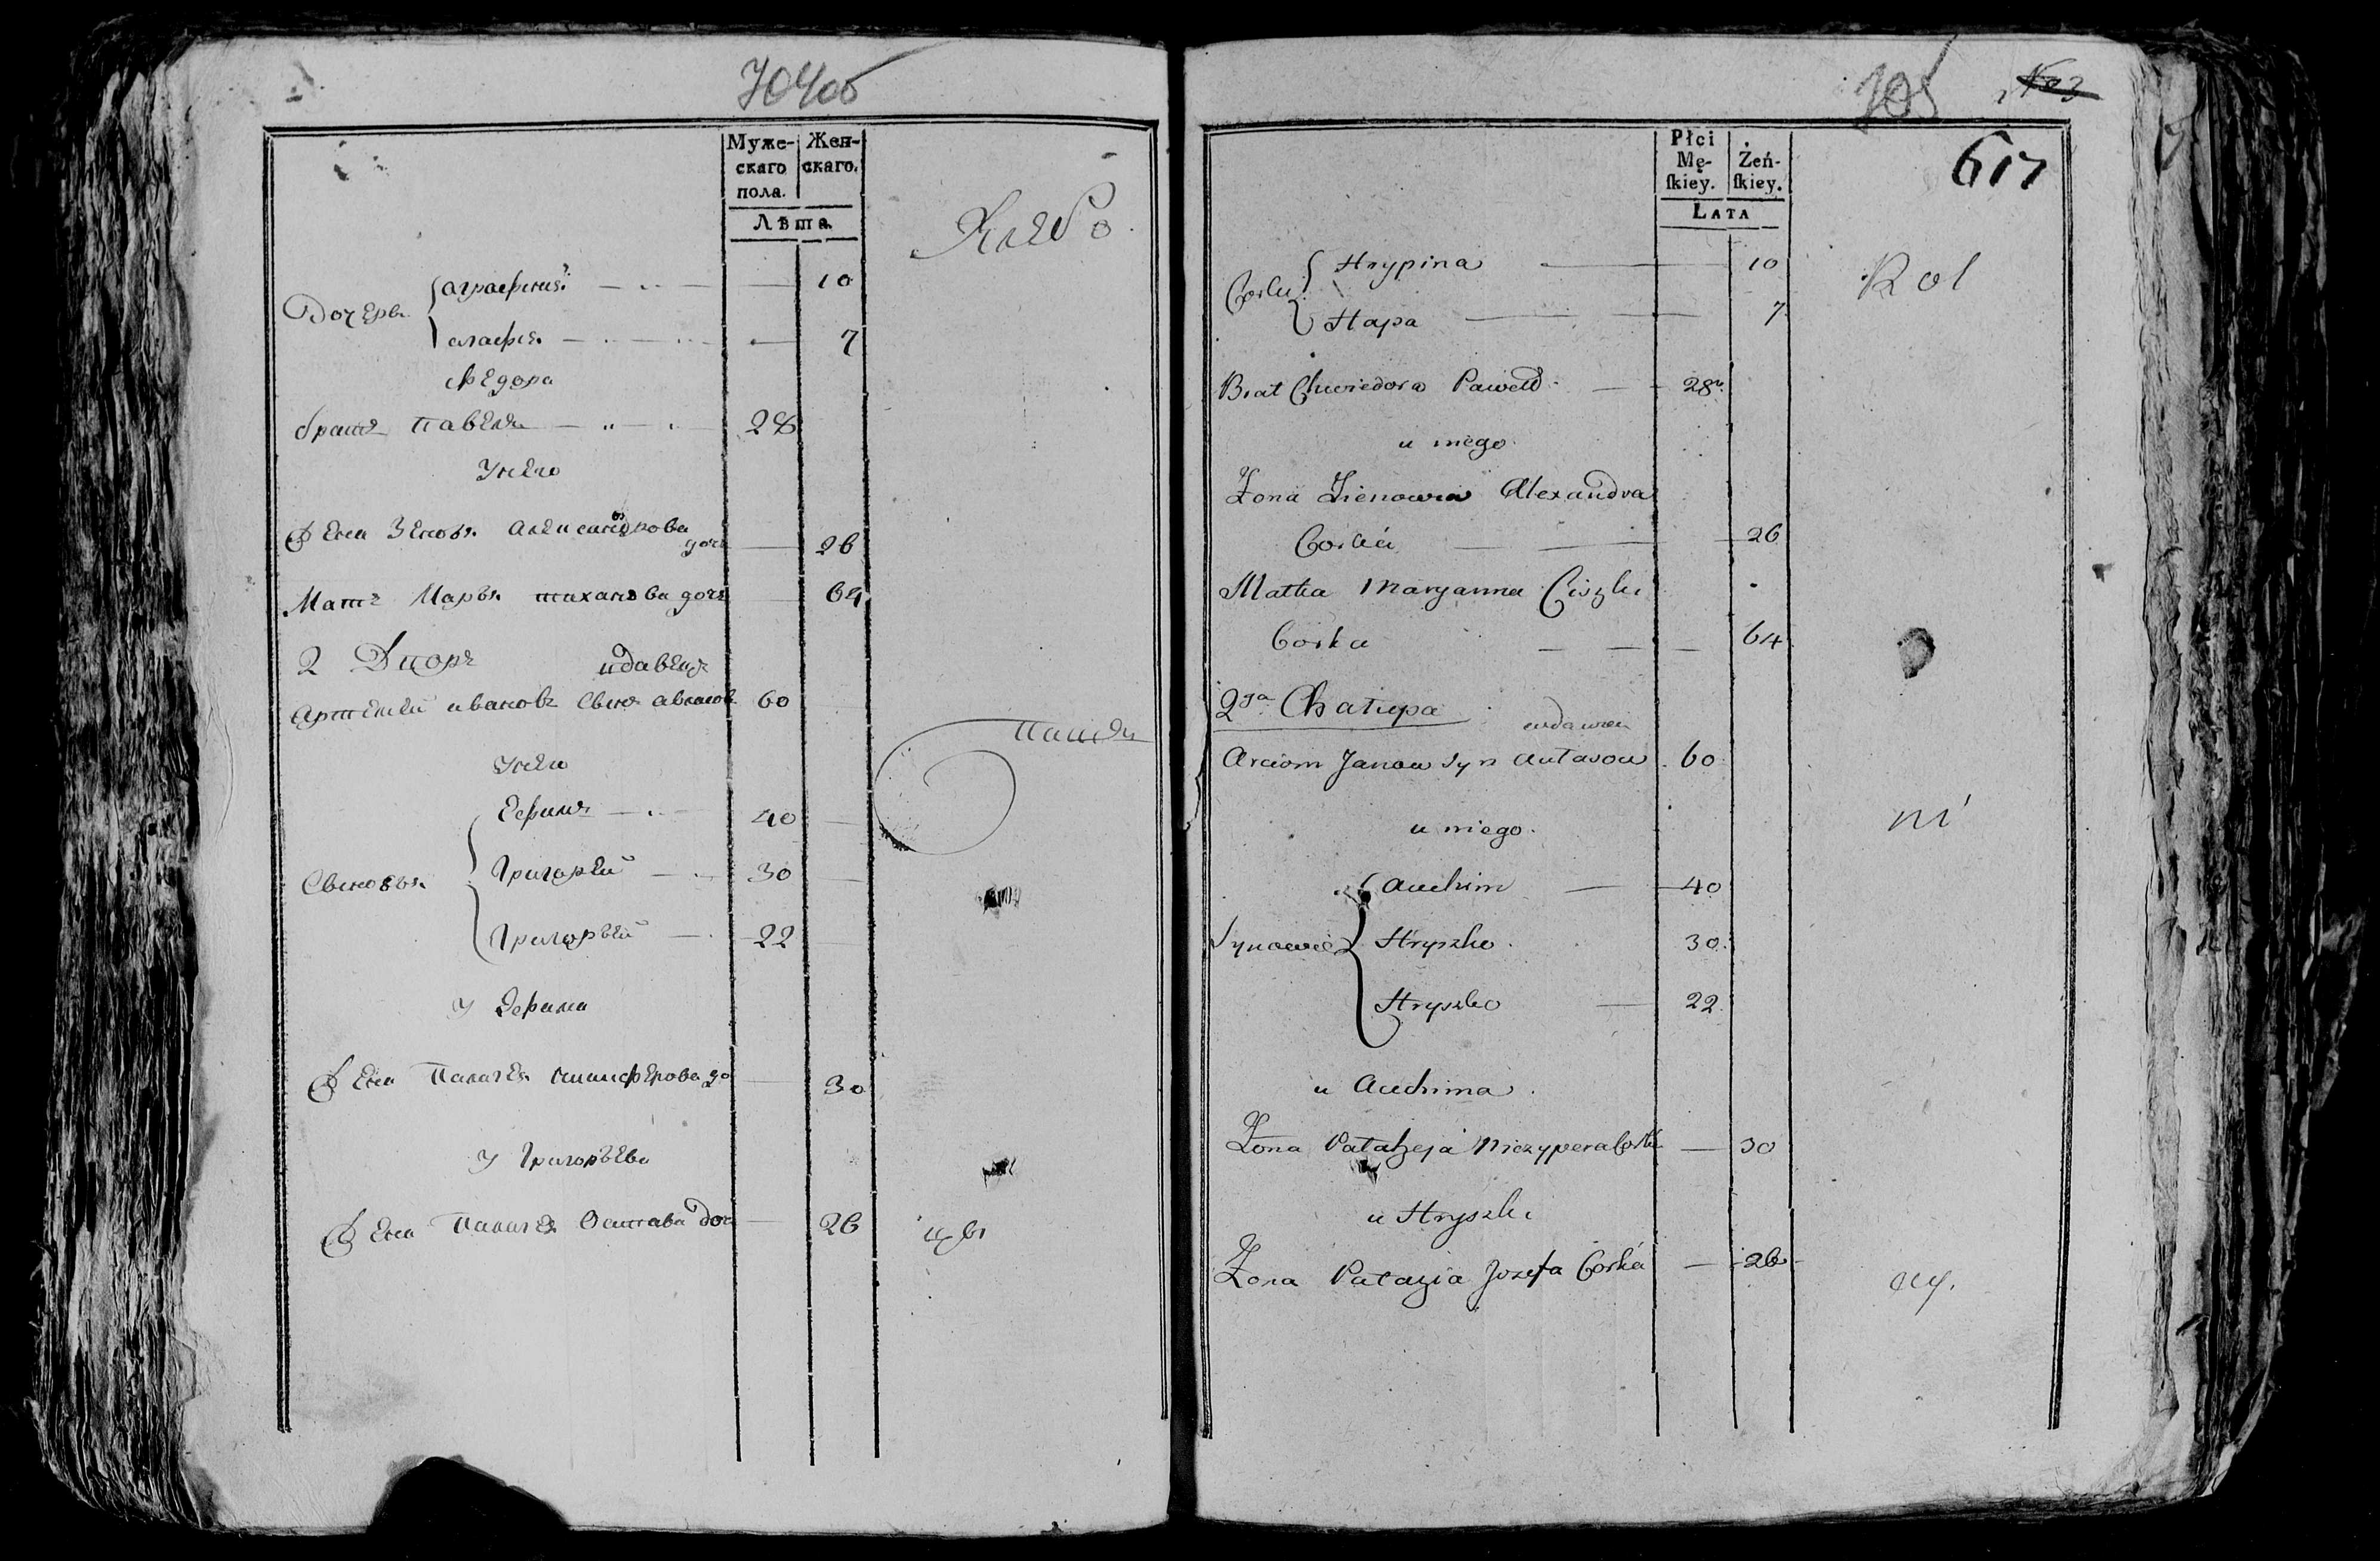 704об
Муже-
скаго
пола.
Жен-
скаго.
Лѣта.
Хлебо
Дочерь
аграфена 10
агафья 7
федора
братъ павелъ 28
У него
Жена Зеновья александрова
дочь 26
Мать Марья тиханова дочь 64
2 Дворъ вдавецъ
Артемей ивановъ сынъ 60
пашцы
У него
Ефимъ 40
Сыновья Григорей 30
Григорьей 22
У Ефима
Жена Палагея никиферова до 30
У Григорьева
Жена Палагея Осипава доч 26
цы
705
617
Płci
Mę-
ſkiey.
Żeń-
ſkiey.
Lata
Corki
Hrypina 10
Hapa 7
Rol
Brat Chwiedora Paweł 28
u niego
Zona Zienowia Alexandra
Corka 26
Matka Maryanna Ciszki
Corka 64
2ga Chałupa wdawiec
Arciom Janow syn 60
ni
u niego
Auchim 40
Synowie Hryszko 30
Hryszko 22
u Auchima
Zona Pałaheja Niczypera Corka 30
u Hryszki
Zona Pałazia Jozefa Corka 26
cy.